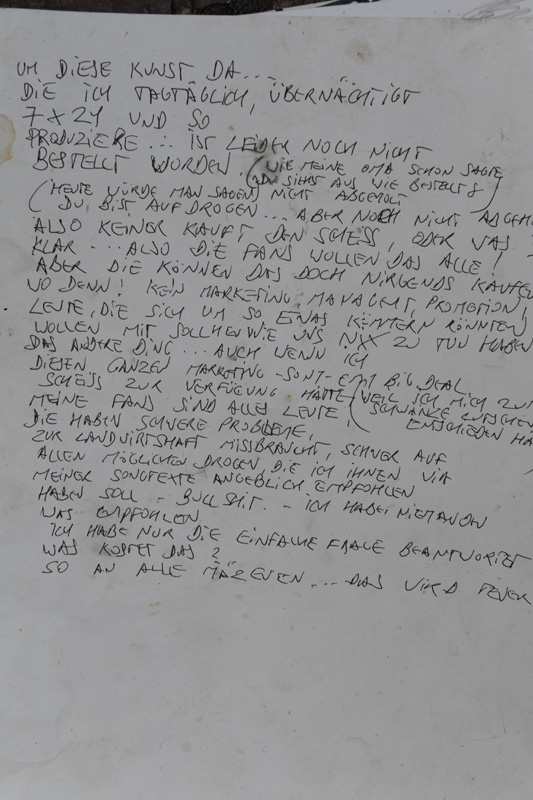 UM DIESE KUNST DA...
DIE ICH TAGTÄGLICH, ÜBERNÄCHTIGT
7X24 UND SO
PRODUZIERE... IST LEIDER NOCH NICHT
BESTELLT WORDEN. (WIE MEINE OMA SCHON SAGTE
DU SIEHST AUS WIE BESTELLT &
(HEUTE WÜRDE MAN SAGEN) NICHT ABGEHOLT
DU BIST AUF DROGEN... ABER NOCH NICHT ABGEH
ALSO KEINER KAUFT DEN SCHEISS, ODER WAS
KLAR... ALSO DIE FANS WOLLEN DAS ALLE!
ABER DIE KÖNNEN DAS DOCH NIRGENDS KAUFEN
WO DENN! KEIN MARKETING, MANAGEMENT, PROMOTION,
LEUTE, DIE SICH UM SO ETWAS KÜMMERN KÖNNTEN
WOLLEN MIT SOLCHEN WIE UNS NIX ZU TUN HABEN
DAS ANDERE DING... AUCH WENN ICH
DIESEN GANZEN MARKETING - BIG DEAL
SCHEISS ZUR VERFÜGUNG HÄTTE (WEIL ICH MICH ZUM
MEINE FANS SIND ALLES LEUTE, SCHWÄNZE LUTSCHEN
DIE HABEN SCHWERE PROBLEME, ENTSCHIEDEN HA
ZUR LANDWIRTSCHAFT MISSBRAUCHT, SCHWER AUF
ALLEN MÖGLICHEN DROGEN DIE ICH IHNEN VIA
MEINER SONGTEXTE ANGEBLICH EMPFOHLEN
HABEN SOLL - BULLSHIT. - ICH HABE NIEMANDN
WAS EMPFOHLEN
ICH HABE NUR DIE EINFACHE FRAGE BEANTWORTET
WAS KOSTET DAS?
SO AN ALLE MÄZENEN... DAS WIRD FEUER